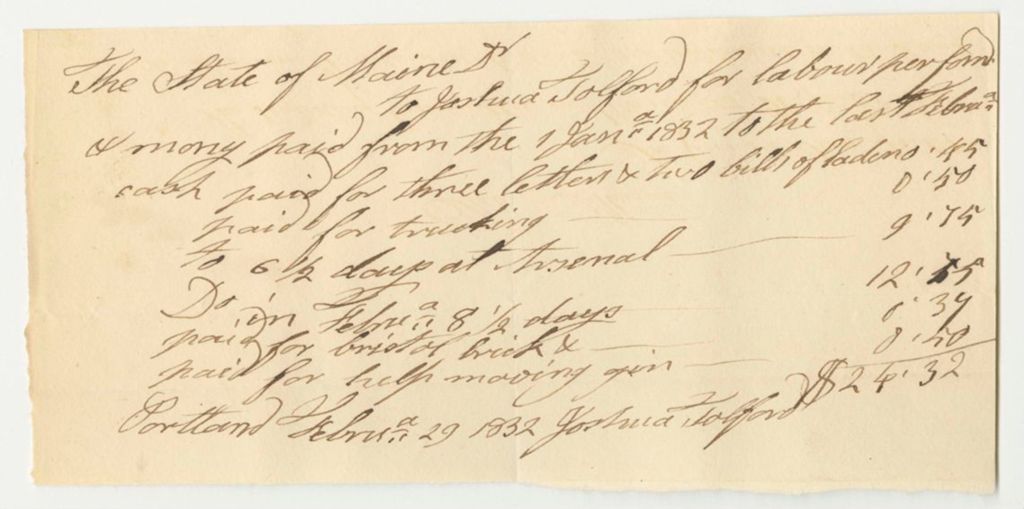 The State of Maine Dr
to Joshua Tolford for labour perform'd
& mony paid from the 1 Janª 1832 to the last Februª
cash paid for three letters & two bills of laden 0.45
paid for trucking 0.50
to 6 1/2 days at Arsenal 9.75
Do in Februª 8 1/2 days 12.75
paid for bristol brick & 0.37
paid for help moving gin 0.50
$24.32
Portland Februª 29 1832 Joshua Tolford